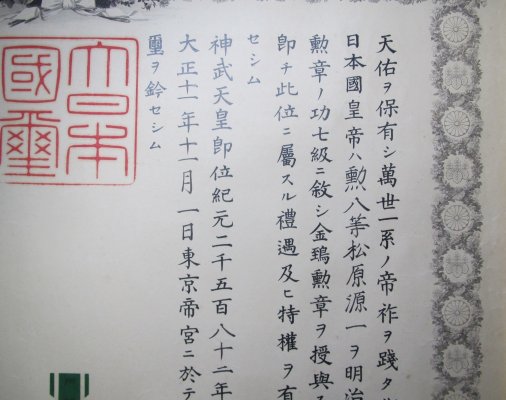 天佑ヲ保有シ萬世一系ノ帝祚ヲ踐タ
日本國皇帝ハ勲八等松原源一ヲ明治
勲章ノ功七級ニ敘シ金鵄勲章ヲ授與
卽チ此位ニ屬スル禮遇及ヒ特權ヲ有
セシム
神武天皇卽位紀元二千五百八十二年
大正十一年十一月一日東京帝宮ニ於テ
璽ヲ鈐セシム
大日本
國璽